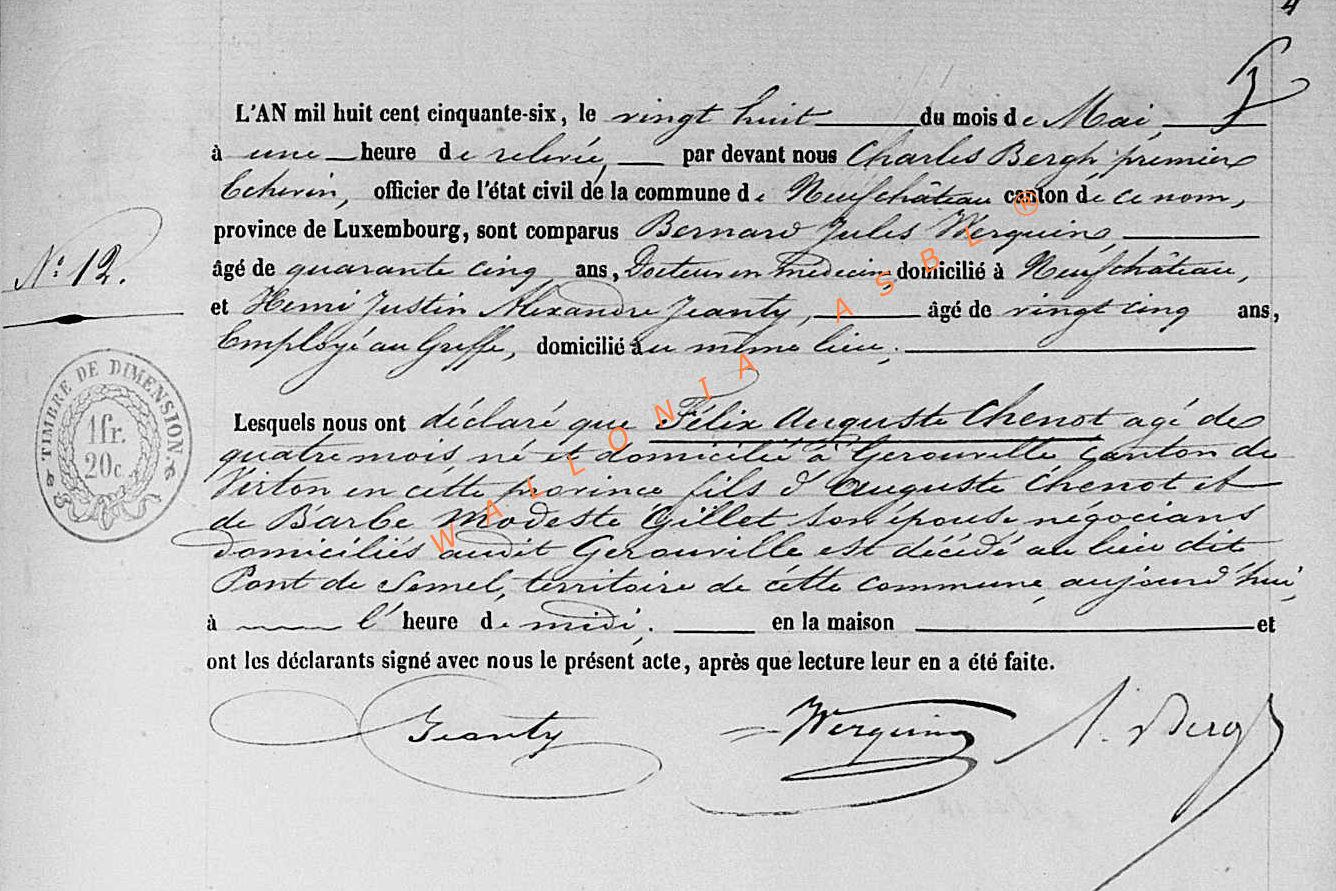 4
3
L'AN mil huit cent cinquante-six, le vingt huit du mois de Mai,
à une heure de relevée, par devant nous Charles Bergh premier
Echevin, officier de l'état civil de la commune de Neufchâteau canton de ce nom,
province de Luxembourg, sont comparus Bernard Jules Werquin,
N.° 12.
âgé de quarante cinq ans, Docteur en médecin, domicilié à Neufchâteau,
et Henri Justin Alexandre Jeanty, âgé de vingt cinq ans,
Employé au Greffe, domicilié au même lieu;
TIMBRE DE DIMENSION
1 fr.
20c
Lesquels nous ont déclaré que Félix Auguste Chenot agé de
quatre mois né et domicilié à Gerouville Canton de
Virton en cette province fils d'Auguste Chenot et
de Barbe Modeste Gillet son épouse négocians
domiciliés audit Gerouville est décédé au lieu dit
Pont de Semel, territoire de cette commune, aujourd'hui,
à l'heure de midi, en la maison et
ont les déclarants signé avec nous le présent acte, après que lecture leur en a été faite.
Jeanty Werquin Bergh
WALLONIA ASBL ®